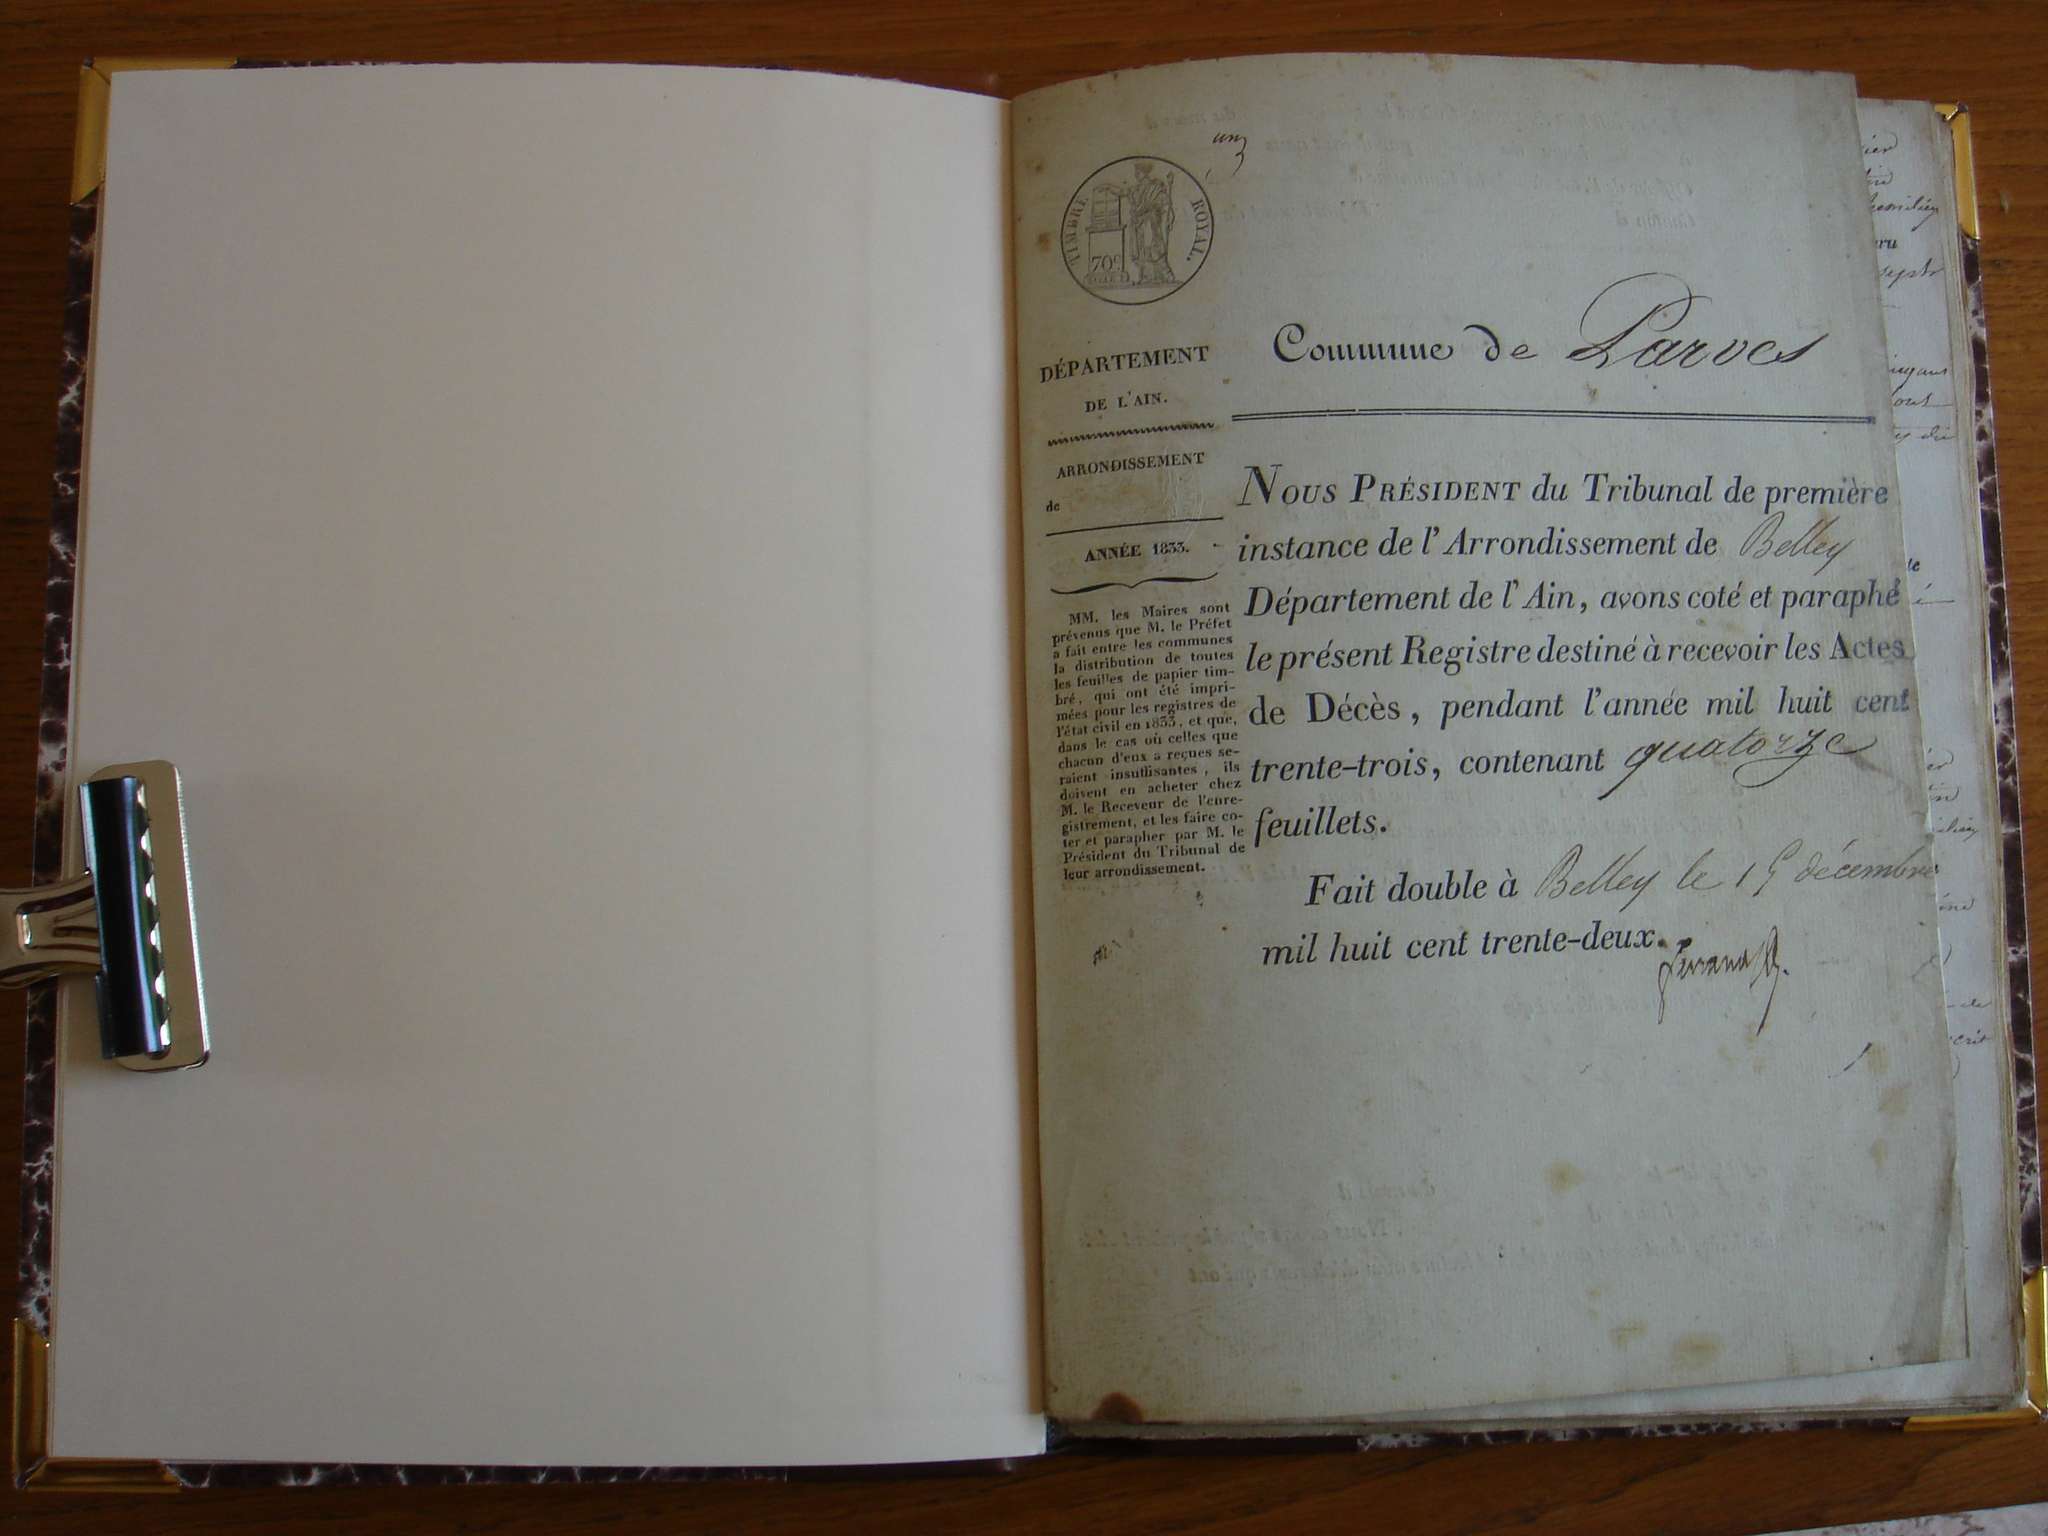 un
TIMBRE ROYAL.
70c
DÉPARTEMENT
DE L'AIN.
ARRONDISSEMENT
de
ANNÉE 1833.
MM. les Maires sont
prévenus que M. le Préfet
a fait entre les communes
la distribution de toutes
les feuilles de papier tim-
bré, qui ont été impri-
mées pour les registres de
l'état civil en 1833, et que,
dans le cas où celles que
chacun d'eux a reçues se-
raient insuffisantes, ils
doivent en acheter chez
M. le Receveur de l'enre-
gistrement, et les faire co-
ter et parapher par M. le
Président du Tribunal de
leur arrondissement.
Commune de Parves
NOUS PRÉSIDENT du Tribunal de première
instance de l'Arrondissement de Belley
Département de l'Ain, avons coté et paraphé
le présent Registre destiné à recevoir les Actes
de Décès, pendant l'année mil huit cent
trente-trois, contenant quatorze
feuillets.
Fait double à Belley le 15 décembre
mil huit cent trente-deux.